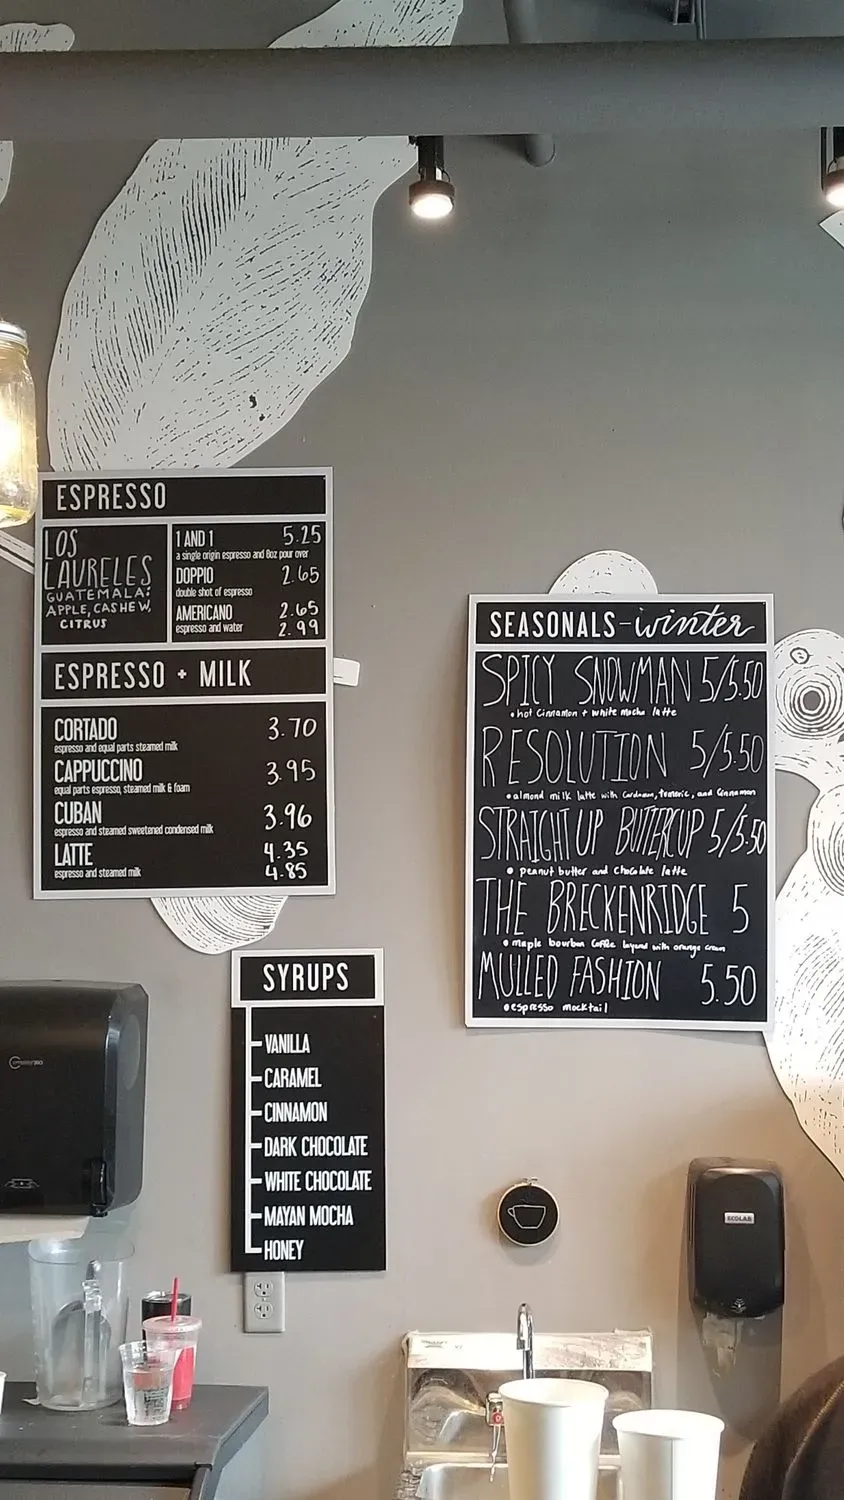 ESPRESSO
LOS
LAURELES
GUATEMALA:
APPLE, CASHEW,
CITRUS
1 AND 1 5.25
a single origin espresso and 8oz pour over
DOPPIO 2.65
double shot of espresso
AMERICANO 2.65
espresso and water 2.99
ESPRESSO + MILK
CORTADO 3.70
espresso and equal parts steamed milk
CAPPUCCINO 3.95
equal parts espresso, steamed milk & foam
CUBAN 3.96
espresso and steamed sweetened condensed milk
LATTE 4.35
espresso and steamed milk 4.85
SEASONALS - winter
SPICY SNOWMAN 5/5.50
• hot cinnamon + white mocha latte
RESOLUTION 5/5.50
• almond milk latte with cardamom, turmeric, and cinnamon
STRAIGHT UP BUTTERCUP 5/5.50
• peanut butter and chocolate latte
THE BRECKENRIDGE 5
• maple bourbon coffee layered with orange cream
MULLED FASHION 5.50
• espresso mocktail
SYRUPS
VANILLA
CARAMEL
CINNAMON
DARK CHOCOLATE
WHITE CHOCOLATE
MAYAN MOCHA
HONEY
ECOLAB